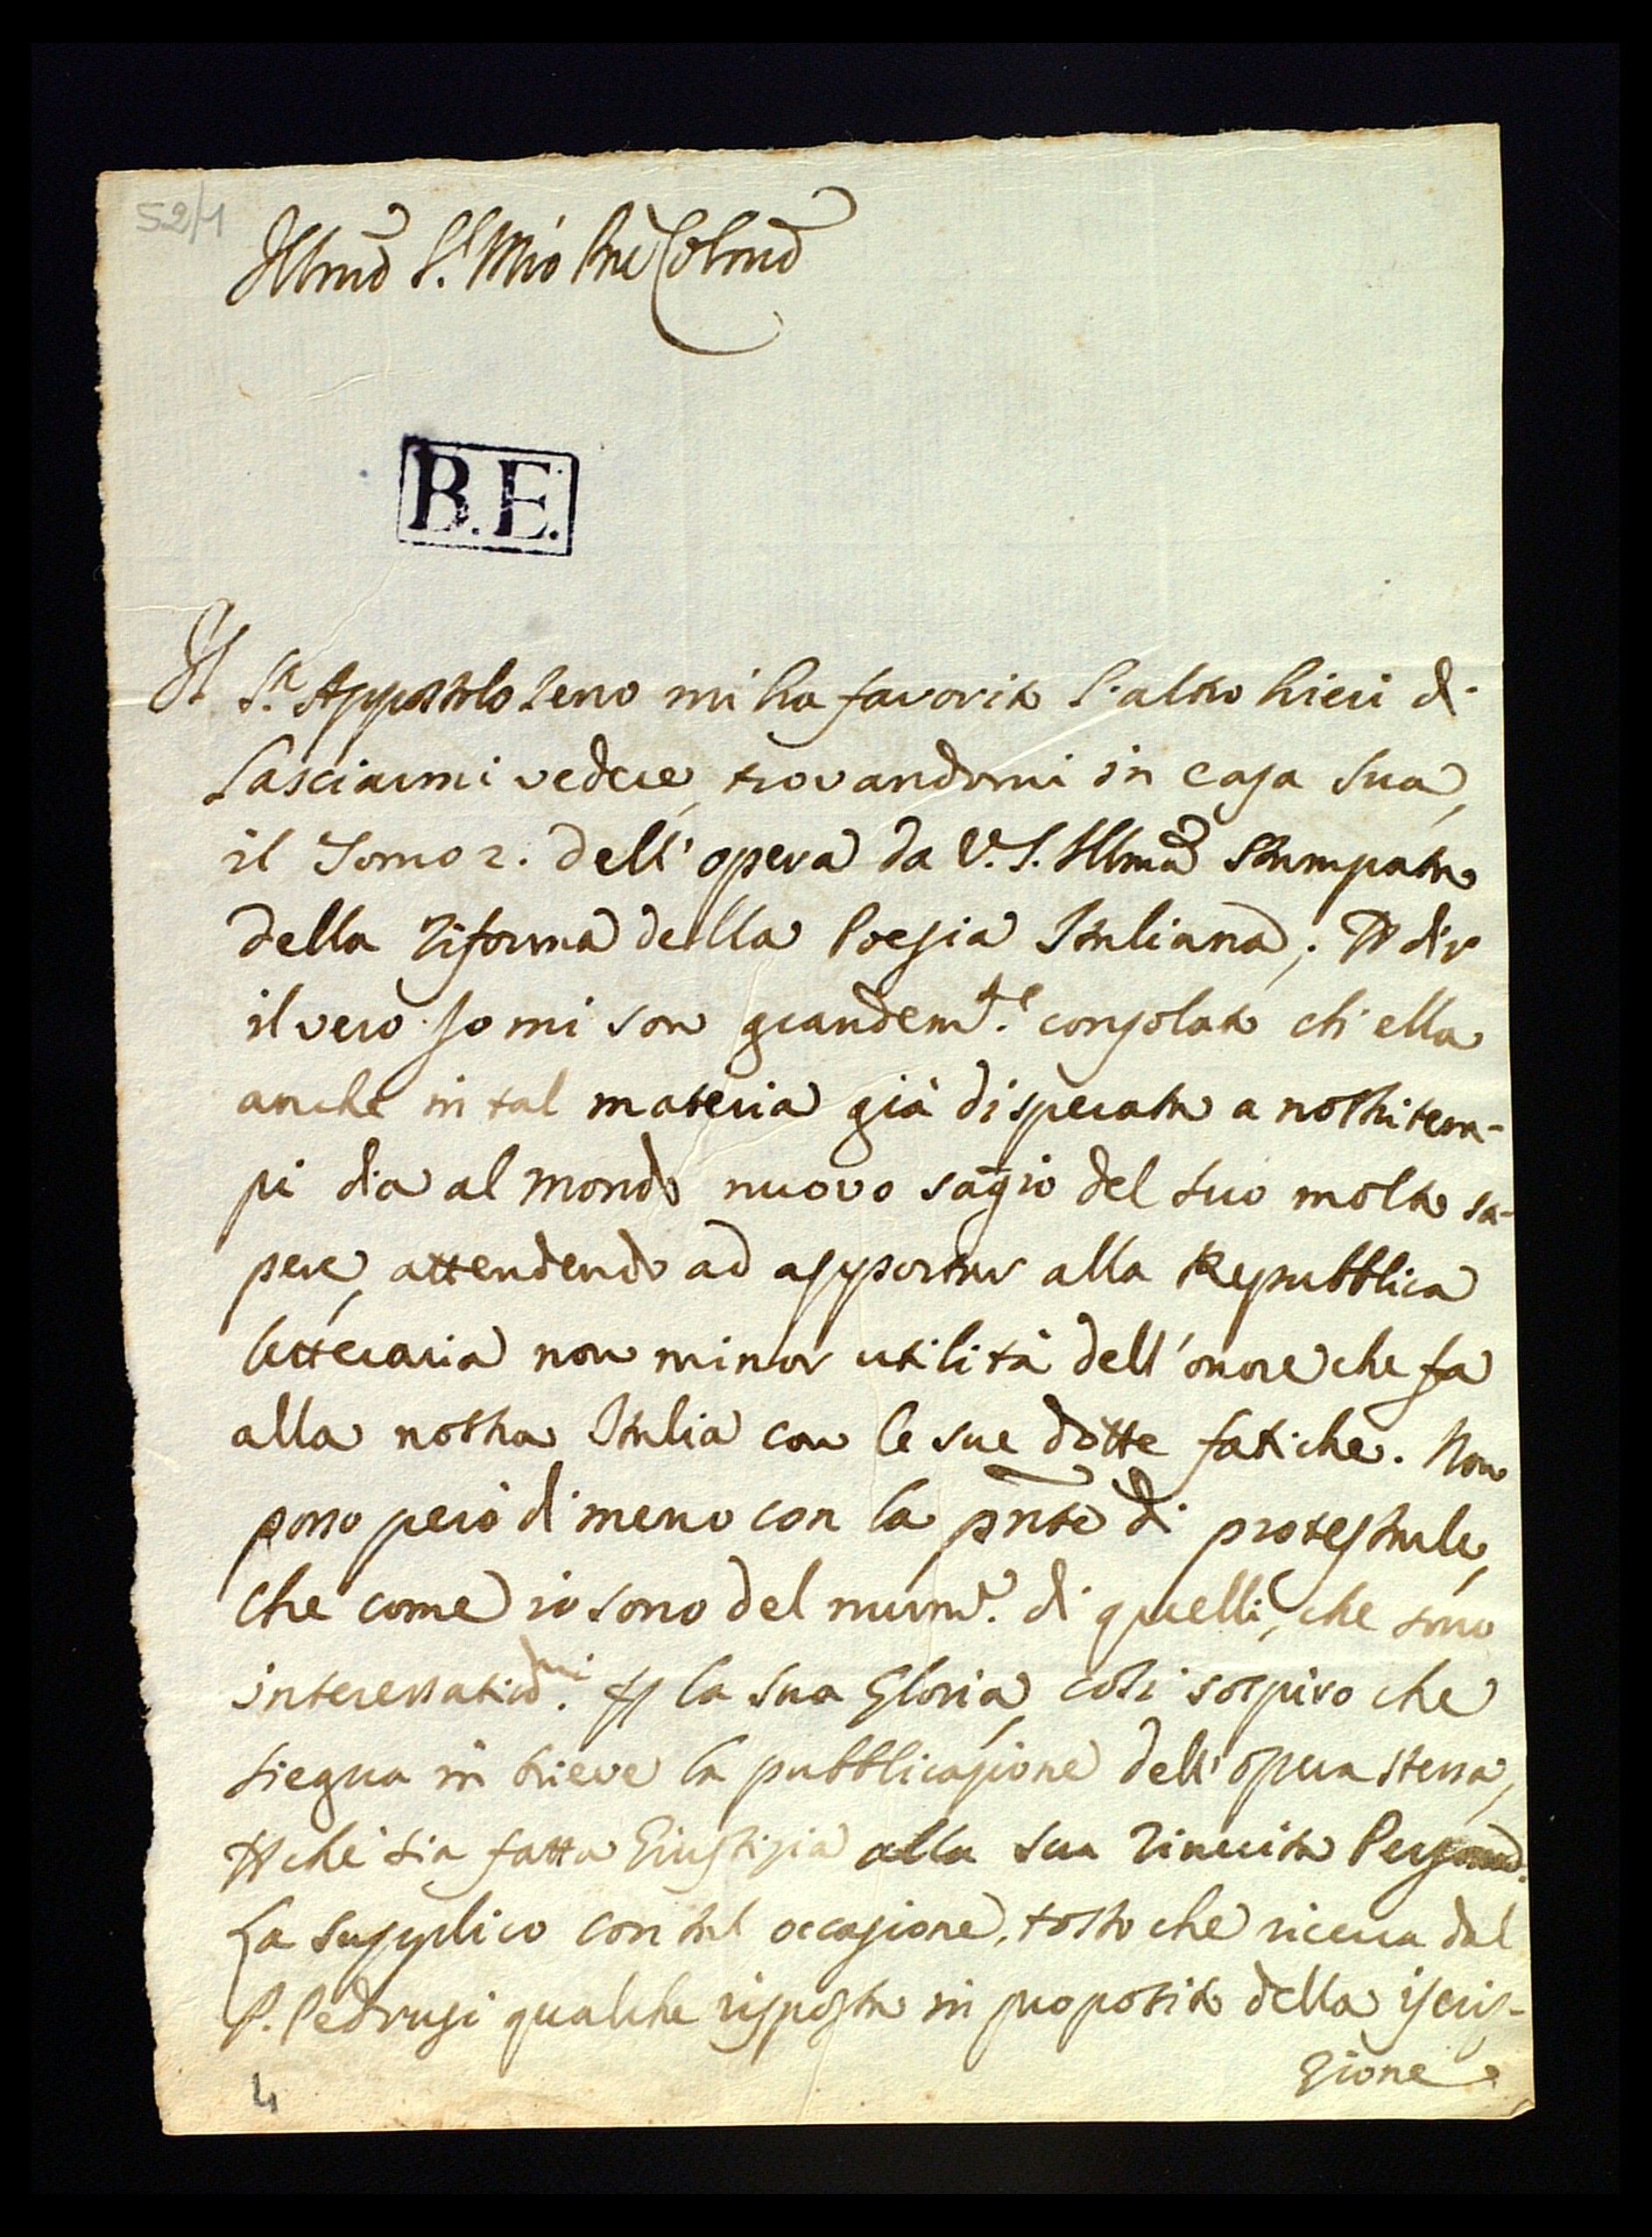 52/1
Illmo Sr. Mio Pne Colmo
B.E.
Il Sr. Appostolo Zeno mi ha favorito l'altro hieri di
lasciarmi vedere, trovandomi in casa sua,
il Tomo 2. dell'opera da V.S. Illma stampata
della riforma della Poesia Italiana; Per dir
il vero Io mi son grandemte. consolato ch'ella
anche in tal materia già disperata a nostri tem-
pi dia al mondo nuovo sagio del suo molto sa-
pere, attendendo ad apportar alla Repubblica
letteraria non minor utilità dell'onore che fa
alla nostra Italia con le sue dotte fatiche. Non
posso però di meno con la pnte di protestarle,
che come io sono del numo. di quelli, che sono
interessatissmi. per la sua Gloria, così sospiro che
siegua in brieve la pubblicazione dell'opera stessa,
per che sia fatta Giustizia alla sua riverita Persona.
La supplico con tal occasione, tosto che riceva dal
P. Pedrusi qualche risposta in proposito della iscri-
zione
4